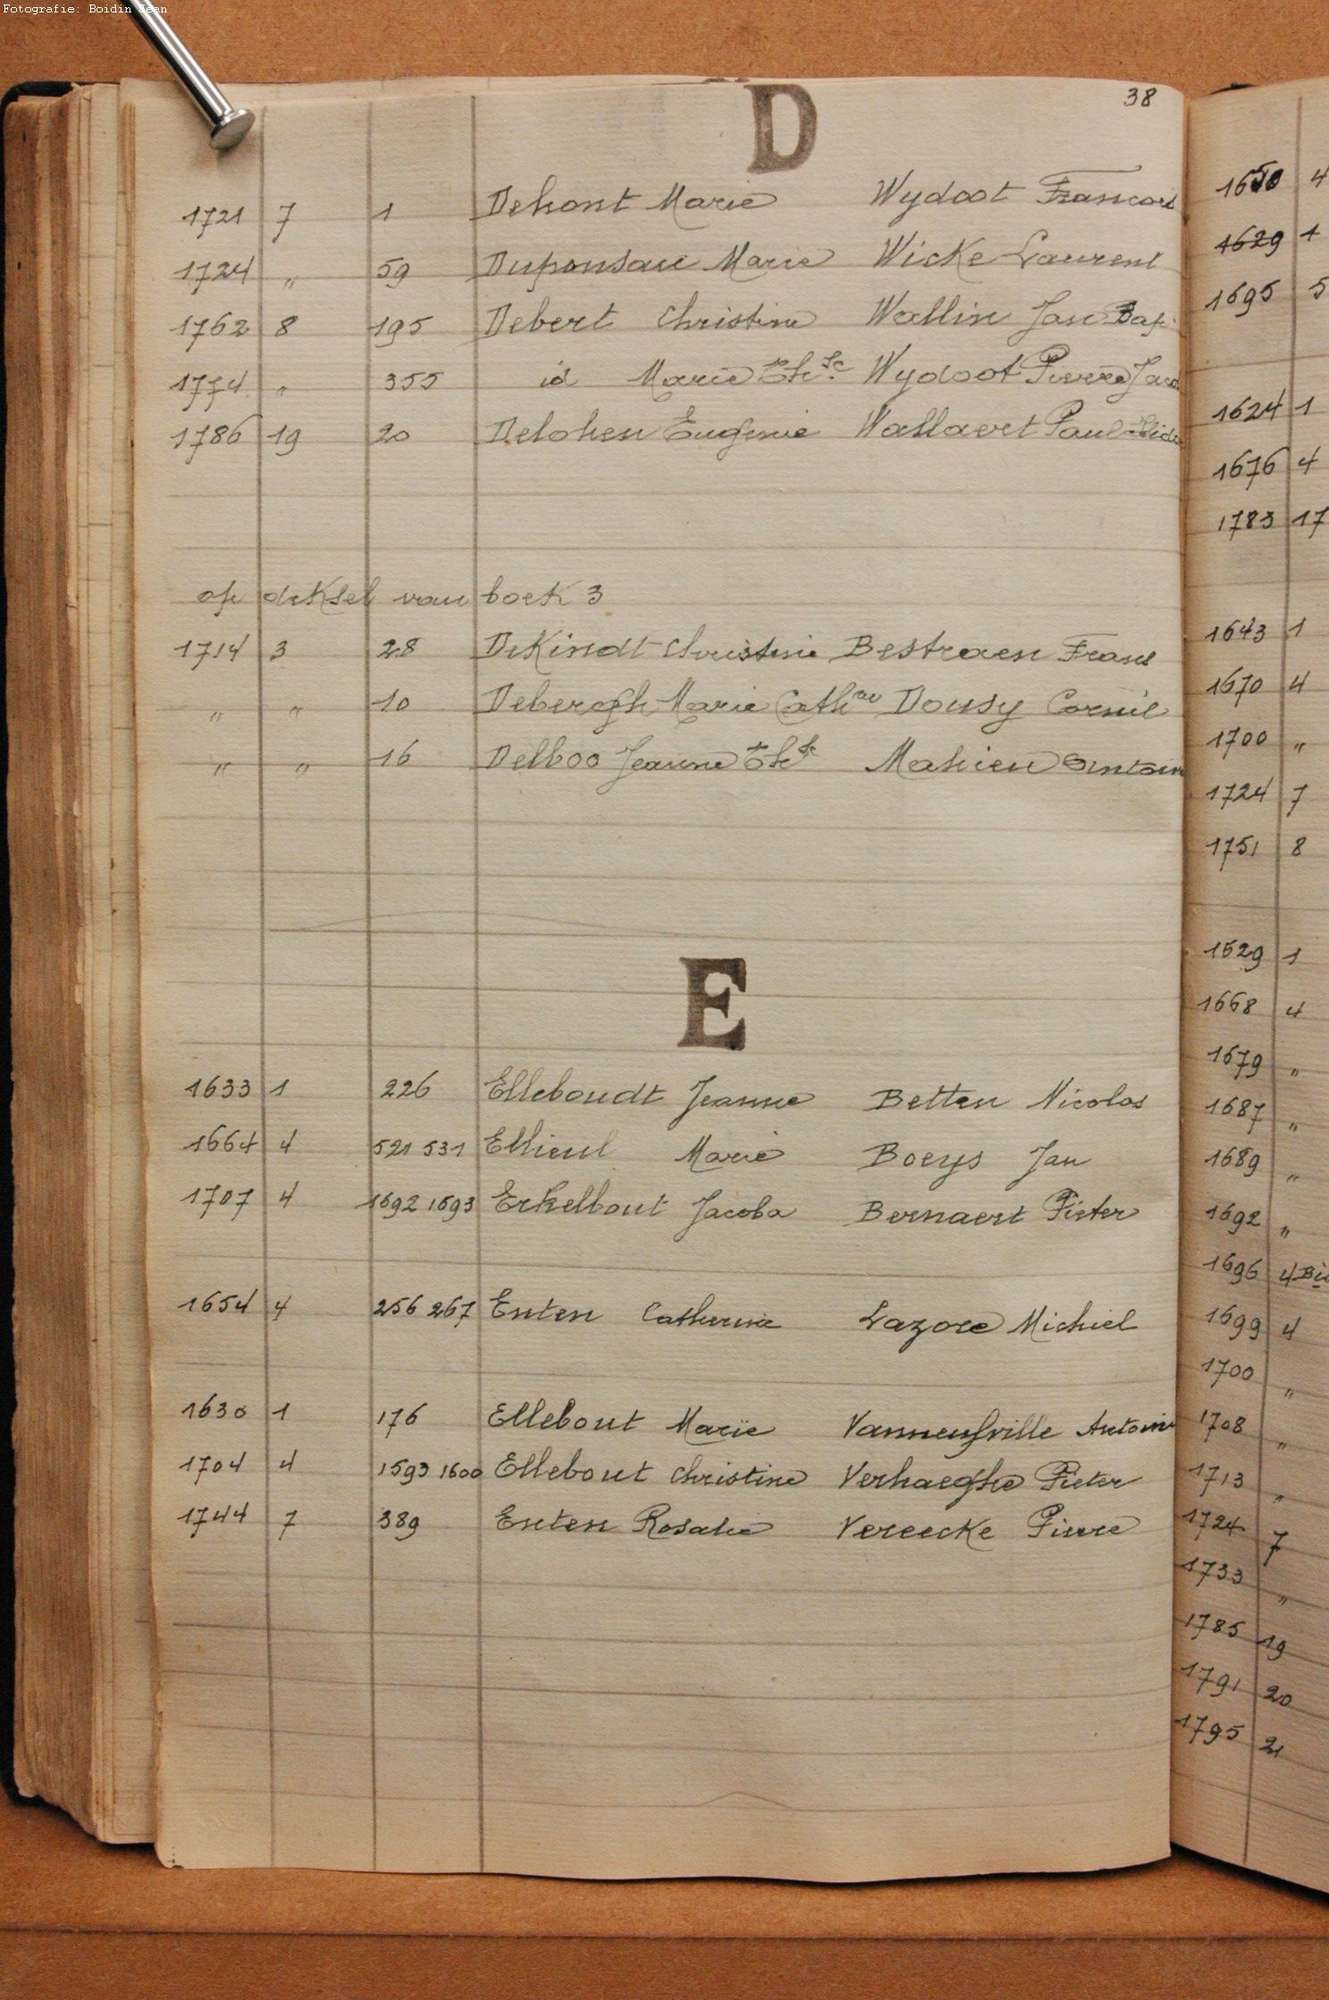 Fotografie: Boidin Jean
38
D
1721 7 1 Dehont Marie Wydoot Francois
1724 " 59 Duponsaue Marie Wicke Laurent
1762 8 195 Debert Christine Wallin Jan Bap
1774 " 355 id Marie Wydoot Pierre Jaco
1786 19 20 Delohen Eugenie Wallaert Paul
op deksel van boek 3
1714 3 28 DeKindt Christine Bestraen Frans
" " 10 Debergh Marie Cath Dousy Cornil
" " 16 Delboo Jeanne Mahieu Antoin
E
1633 1 226 Elleboudt Jeanne Betten Nicolas
1664 4 521 531 Ellieul Marie Boeys Jan
1707 4 1692 1693 Erkelbout Jacoba Bernaert Pieter
1654 4 256 267 Enten Catherine Lazore Michiel
1630 1 176 Ellebout Marie Vanneufville Antoin
1704 4 1593 1600 Ellebout Christine Verhaeghe Pieter
1744 7 389 Enten Rosalie Vereecke Pierre
1650 4
1629 1
1695 5
1624 1
1676 4
1783 17
1643 1
1670 4
1700 "
1724 7
1751 8
1629 1
1668 4
1679 "
1687 "
1689 "
1692 "
1696 4 Bis
1699 4
1700 "
1708 "
1713 "
1724 7
1733 "
1785 19
1791 20
1795 21